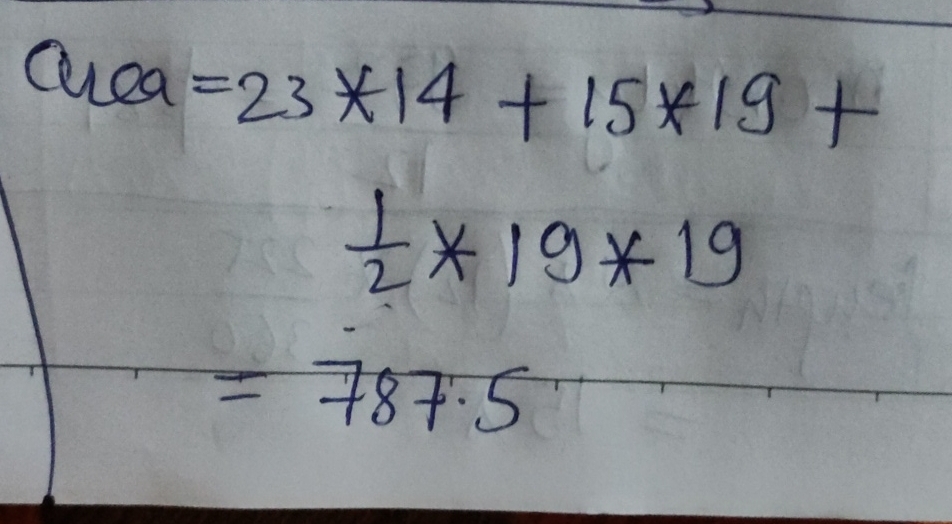 Area = 23 * 14 + 15 * 19 +
1/2 * 19 * 19
= 787.5